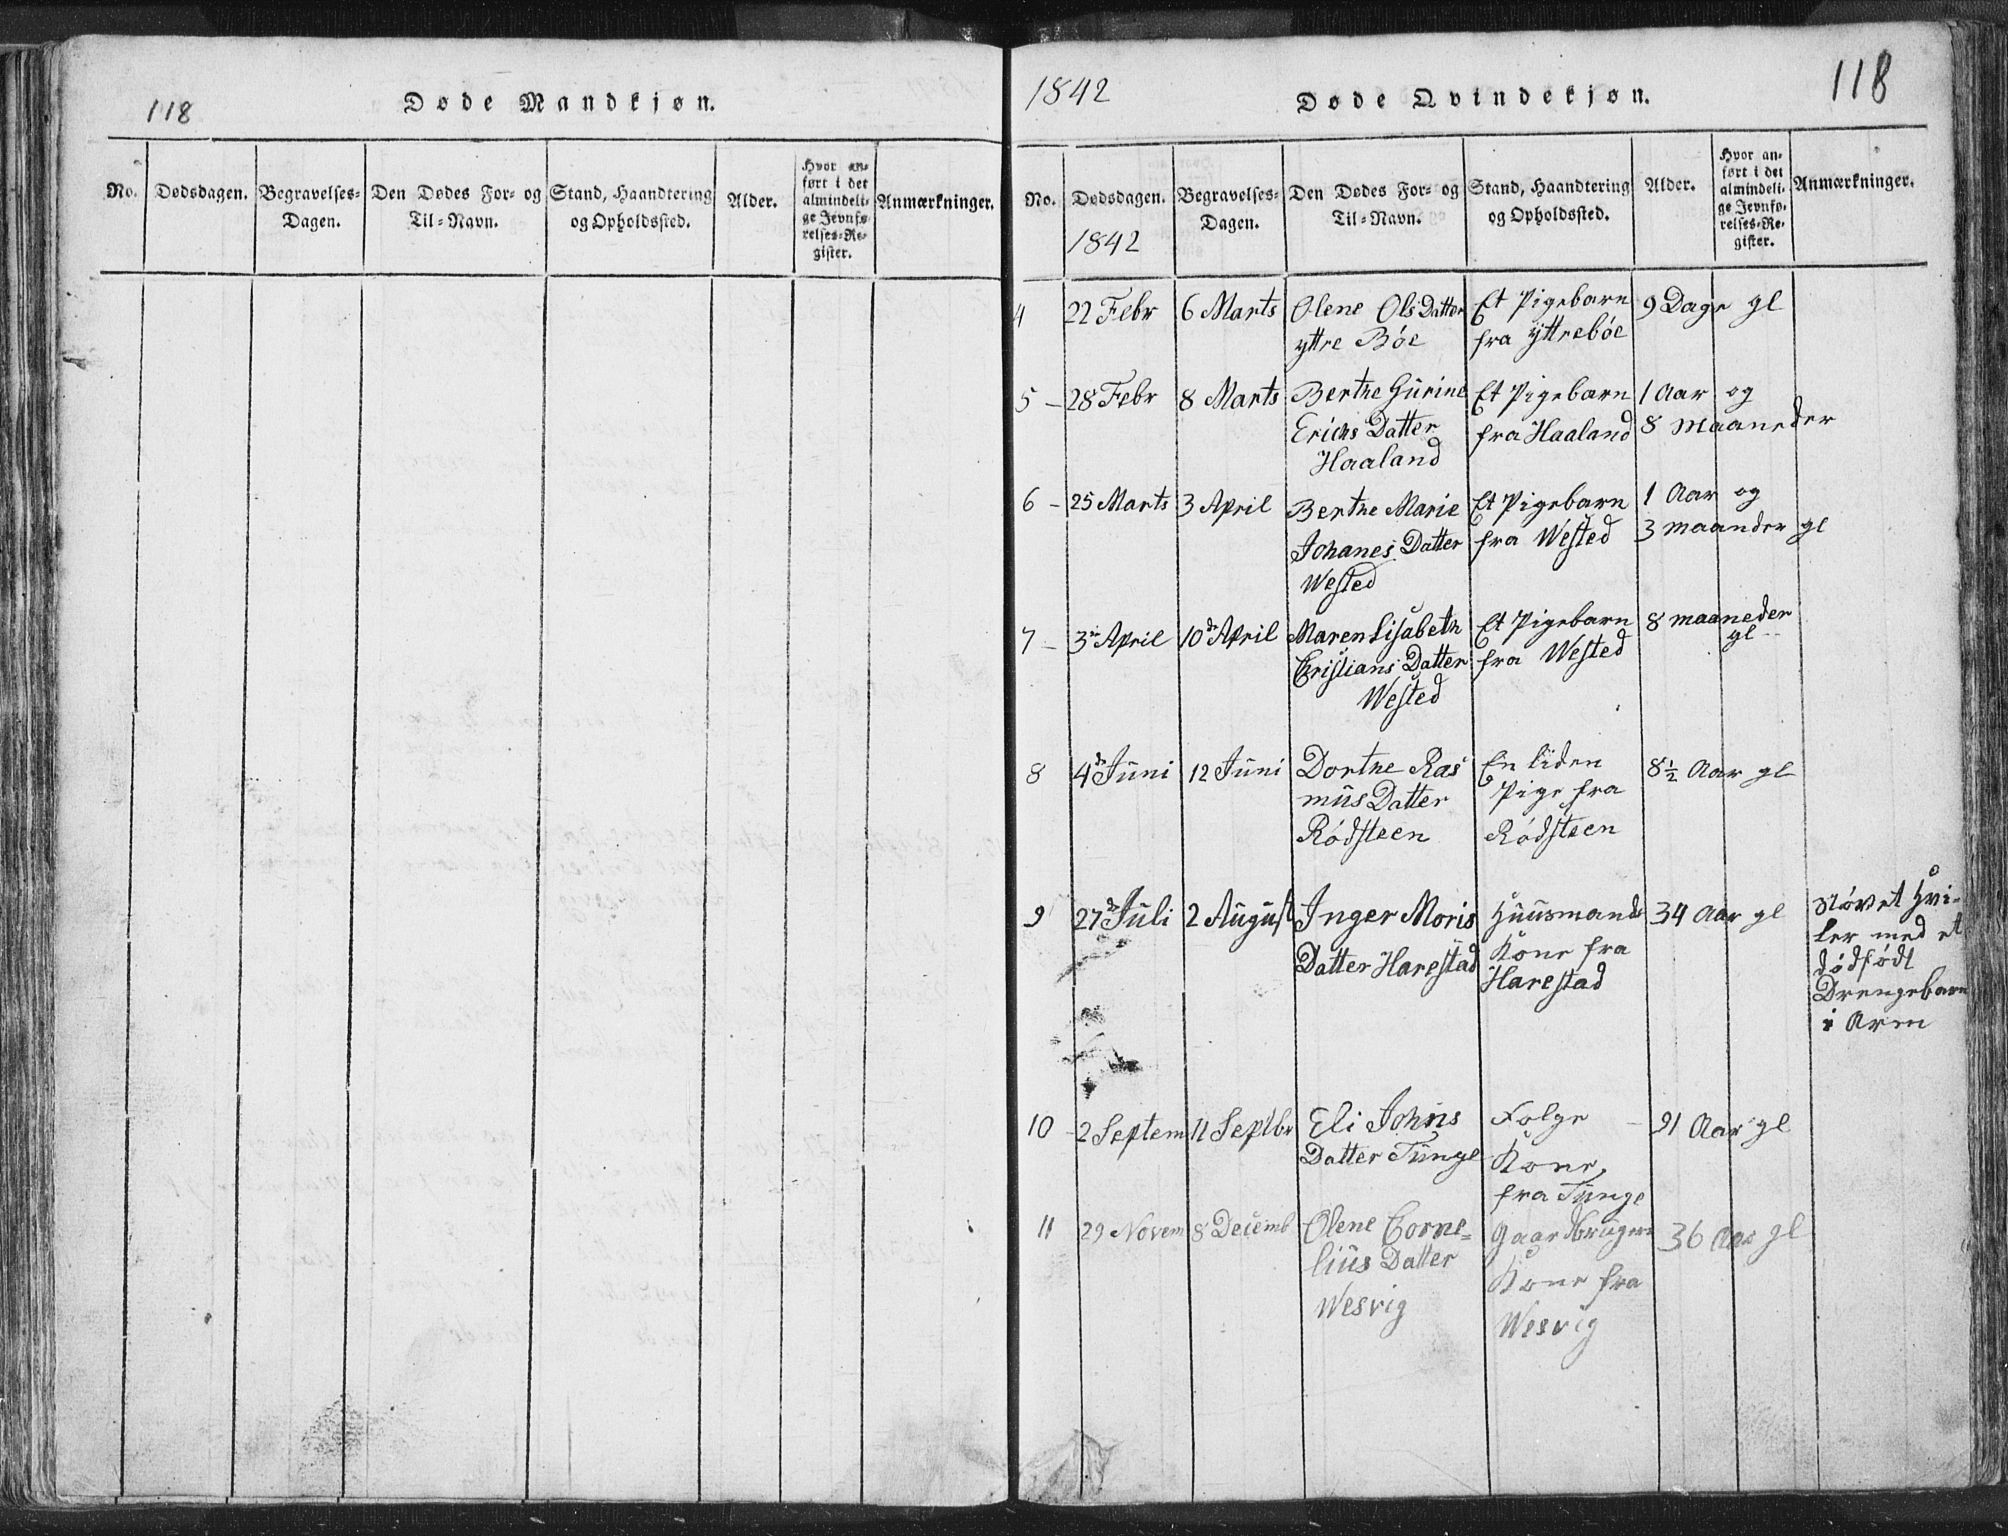 118
Døde Mandkjøn.
No.
Dødsdagen.
Begravelses-
Dagen.
Den Dødes For- og
Til-Navn.
Stand, Haandtering
og Opholdssted.
Alder.
Hvor an-
ført i det
almindeli-
ge Jevnfø-
relses-Re-
gister.
Anmærkninger.
1842
Døde Qvindekjøn.
118
No.
Dødsdagen.
1842
Begravelses-
Dagen.
Den Dødes For- og
Til-Navn.
Stand, Haandtering
og Opholdssted.
Alder.
Hvor an-
ført i det
almindeli-
ge Jevnfø-
relses-Re-
gister.
Anmærkninger.
4 22 Febr 6 Marts Olene Ols Datter Et Pigebarn 9 Dage gl
yttre Bóe fra yttrebóe
5 - 28 Febr 8 Marts Berthe Gurine Et Pigebarn 1 Aar og
Erichs Datter fra Haaland 8 Maaneder
Haaland
6 - 25 Marts 3 April Berthe Marie Et Pigebarn 1 Aar og
Johanes Datter fra Wested 3 maander gl
Wested
7 - 3 April 10 April Maren Lisabeth Et Pigebarn 8 maaneder
Christians Datter fra Wested gl
Wested
8 4 Juni 12 Juni Dorthe Ras En liden 8½ Aar gl
mus Datter Pige fra
Ródsteen Ródsteen
9 27 Juli 2 August Inger Moris Huusmands 34 Aar gl Stóvet Hvi-
Datter Harestad Kone fra ler med et
Harestad dódfódt
Drengebarn
i Arm
10 - 2 Septem 11 Septbr Eli Johns Folge - 91 Aar gl
Datter Tunge Kone
fra Tunge
11 29 Novem 8 Decemb Olene Corne= Gaardbrugers 36 Aar gl
lius Datter Kone fra
Wesvig Wesvig